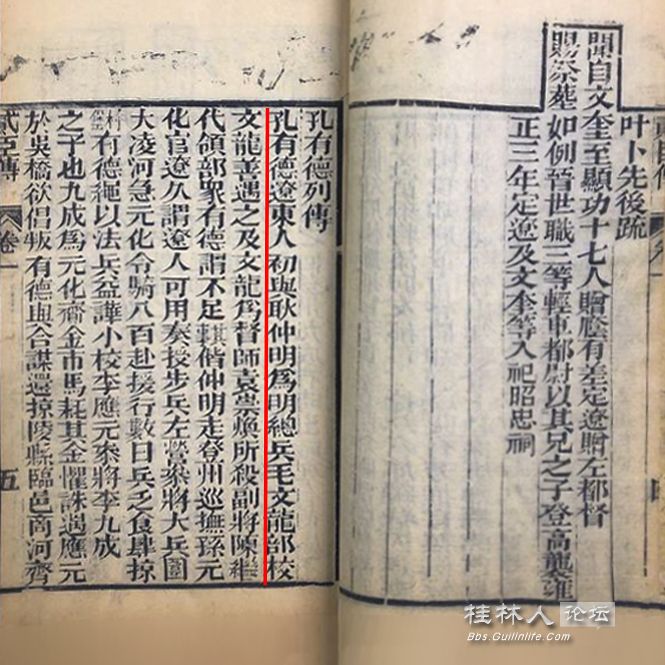 叶卜先後疏
聞自文奎至顯功十七人贈廕有差定遼贈左都督
賜祭葬如例晉世職三等輕車都尉以其兄之子登高襲雍
正三年定遼及文奎等入祀昭忠祠
孔有德列傳
孔有德遼東人初與耿仲明爲明總兵毛文龍部校
文龍善遇之及文龍爲督師袁崇煥所殺副將陳繼
代領部眾有德謂不足偕仲明走登州巡撫孫元
化官遼久謂遼人可用奏授步兵左營參將大兵圍
大凌河急元化令騎八百赴援行數日兵乏食肆掠
村有德繩以法兵益譁小校李應元參將李九成
之子也九成爲元化齎金市馬耗其金懼誅遇應元
於吳橋欲倡叛有德與合謀還掠陵縣臨邑商河齊
貳臣傳 卷一 五
桂林人论坛
Bbs.Guilinlife.Com